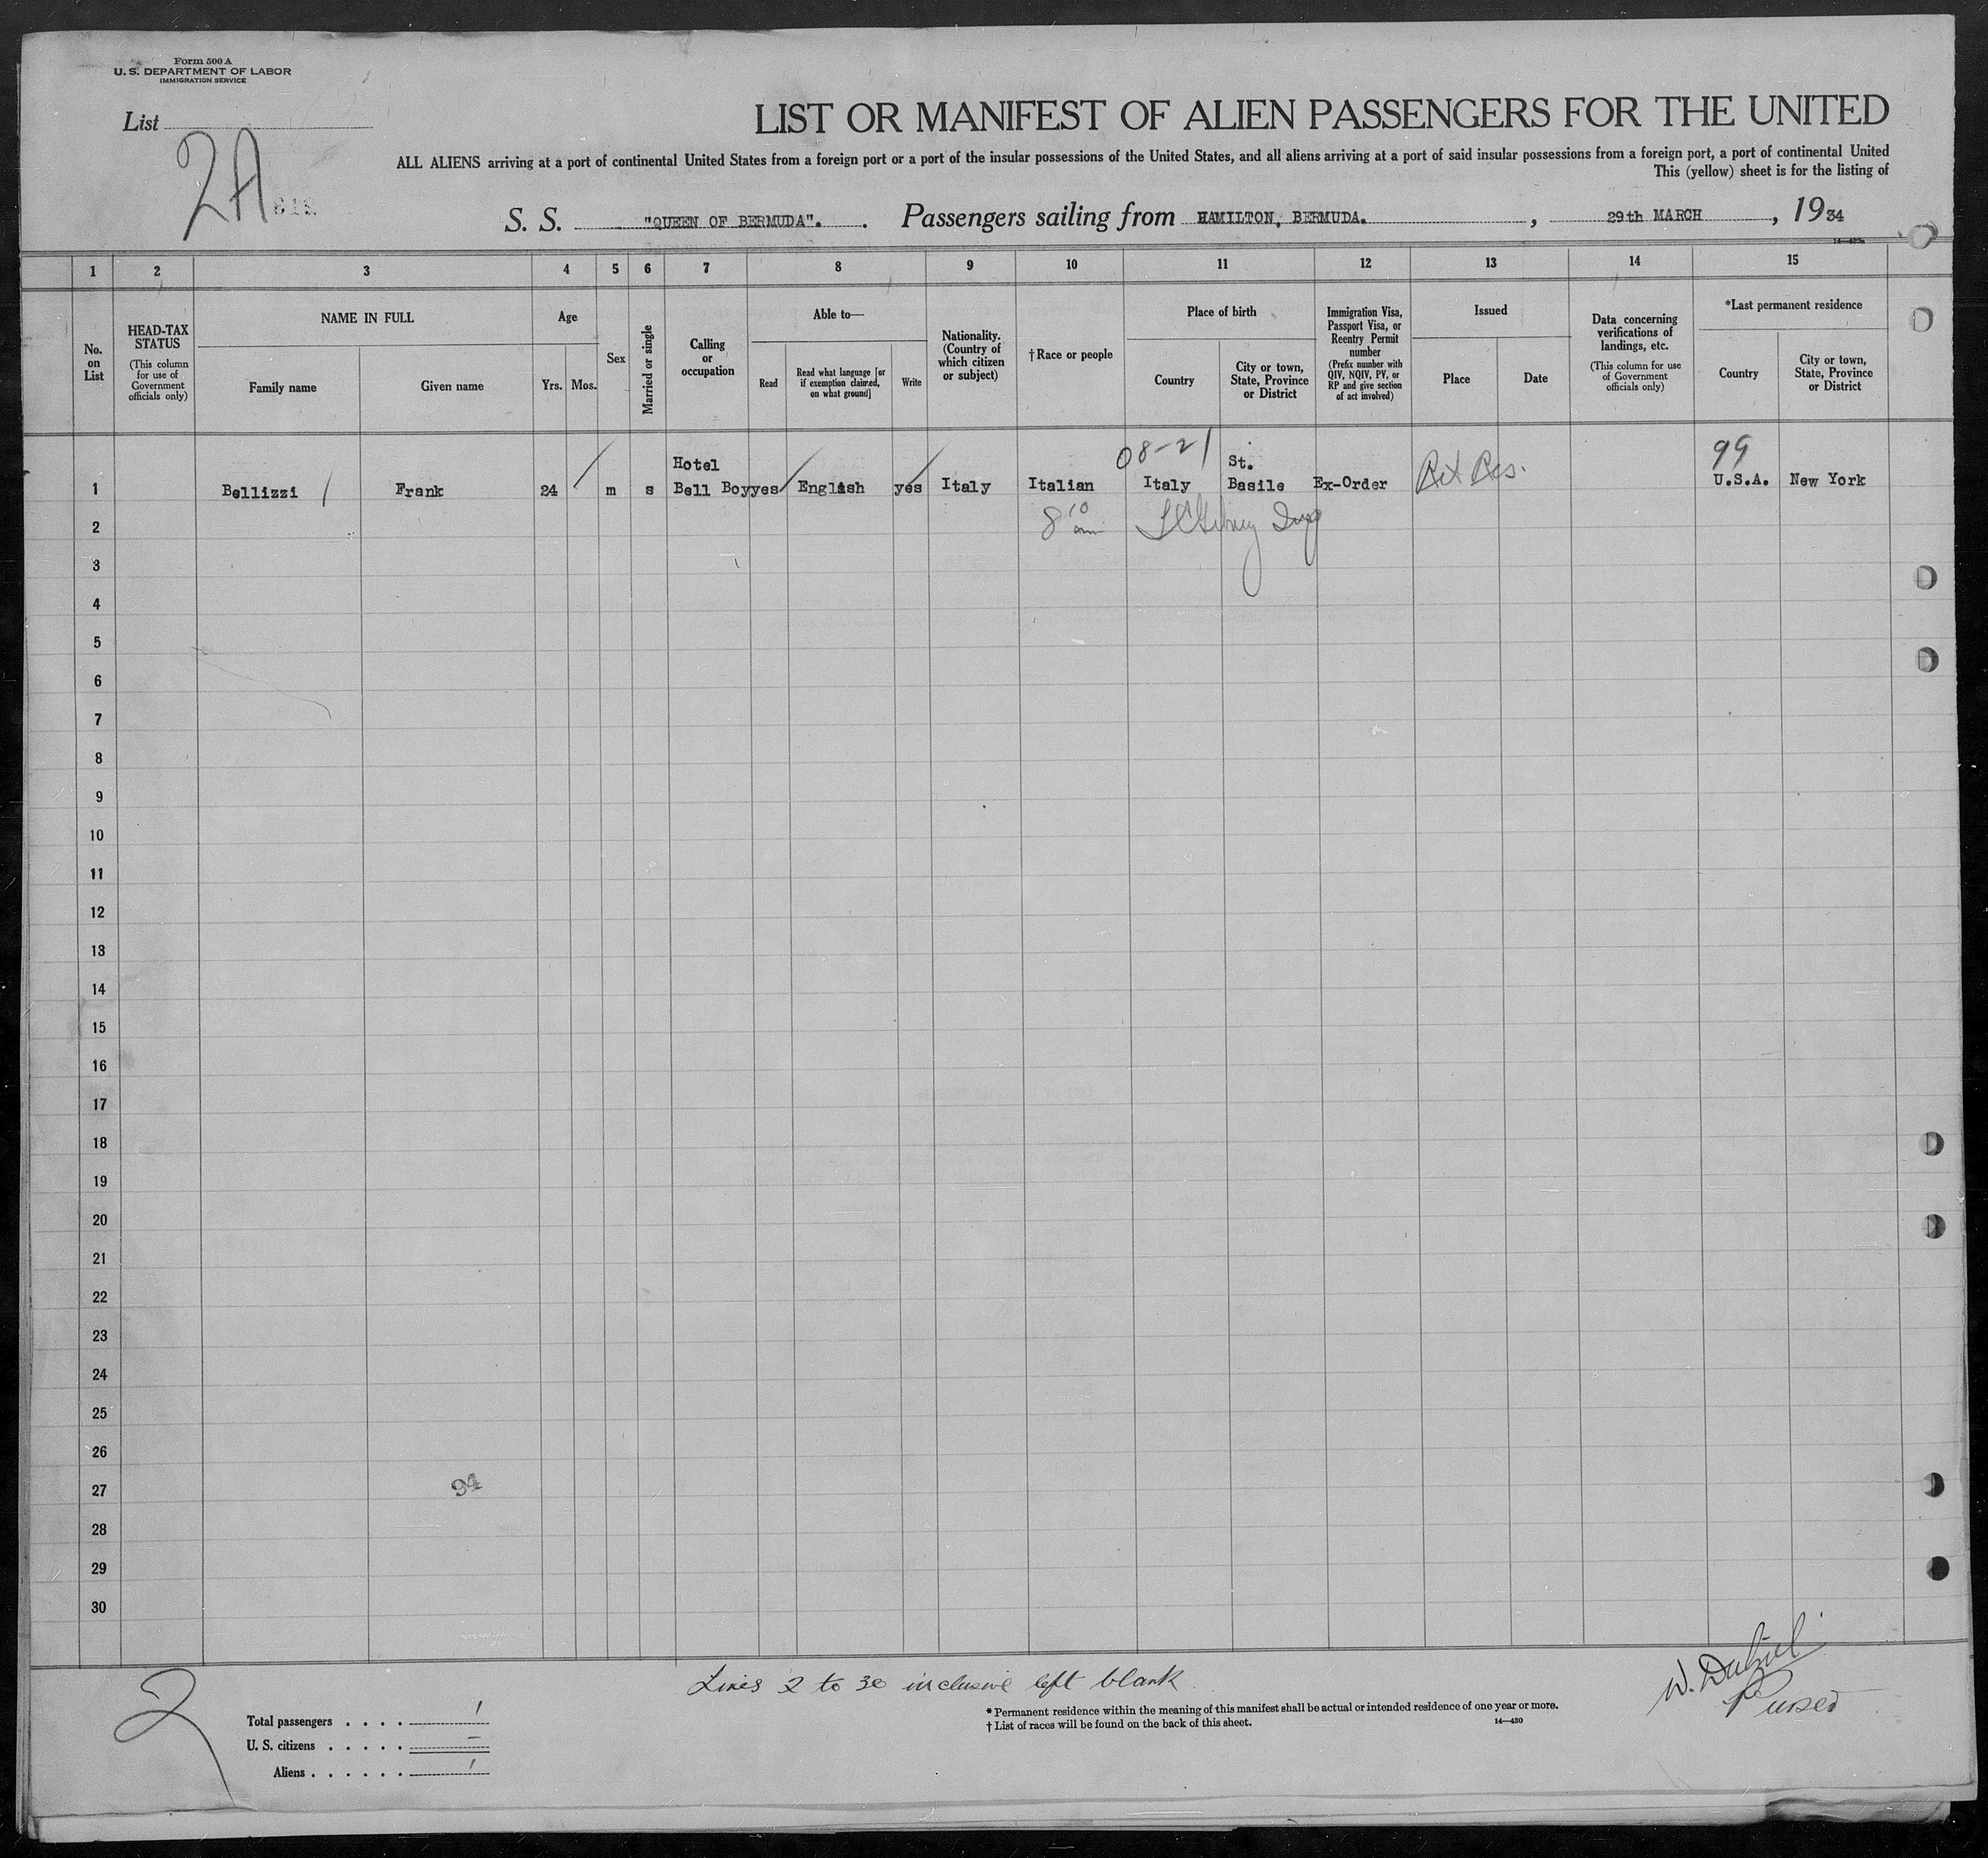 Form 500 A
U. S. DEPARTMENT OF LABOR
IMMIGRATION SERVICE
List
2A
LIST OR MANIFEST OF ALIEN PASSENGERS FOR THE UNITED
ALL ALIENS arriving at a port of continental United States from a foreign port or a port of the insular possessions of the United States, and all aliens arriving at a port of said insular possessions from a foreign port, a port of continental United
This (yellow) sheet is for the listing of
S. S. "QUEEN OF BERMUDA". . Passengers sailing from HAMILTON, BERMUDA. , 29th MARCH , 1934
1 2 3 4 5 6 7 8 9 10 11 12 13 14 15
No. on List
HEAD-TAX STATUS
(This column for use of Government officials only)
NAME IN FULL
Family name
Given name
Age
Yrs. Mos.
Sex
Married or single
Calling or occupation
Able to—
Read
Read what language [or if exemption claimed, on what ground]
Write
Nationality. (Country of which citizen or subject)
†Race or people
Place of birth
Country
City or town, State, Province or District
Immigration Visa, Passport Visa, or Reentry Permit number
(Prefix number with QIV, NQIV, PV, or RP and give section of act involved)
Issued
Place
Date
Data concerning verifications of landings, etc.
(This column for use of Government officials only)
*Last permanent residence
Country
City or town, State, Province or District
08-21 99
Hotel St.
1 Bellizzi Frank 24 m s Bell Boy yes English yes Italy Italian Italy Basile Ex-Order Ret Res. U.S.A. New York
2 8 10 am
3
4
5
6
7
8
9
10
11
12
13
14
15
16
17
18
19
20
21
22
23
24
25
26
27 94
28
29
30
Lines 2 to 30 inclusive left blank
2
Total passengers . . . . 1
U. S. citizens . . . . . –
Aliens . . . . . . 1
* Permanent residence within the meaning of this manifest shall be actual or intended residence of one year or more.
† List of races will be found on the back of this sheet. 14—430
Purser